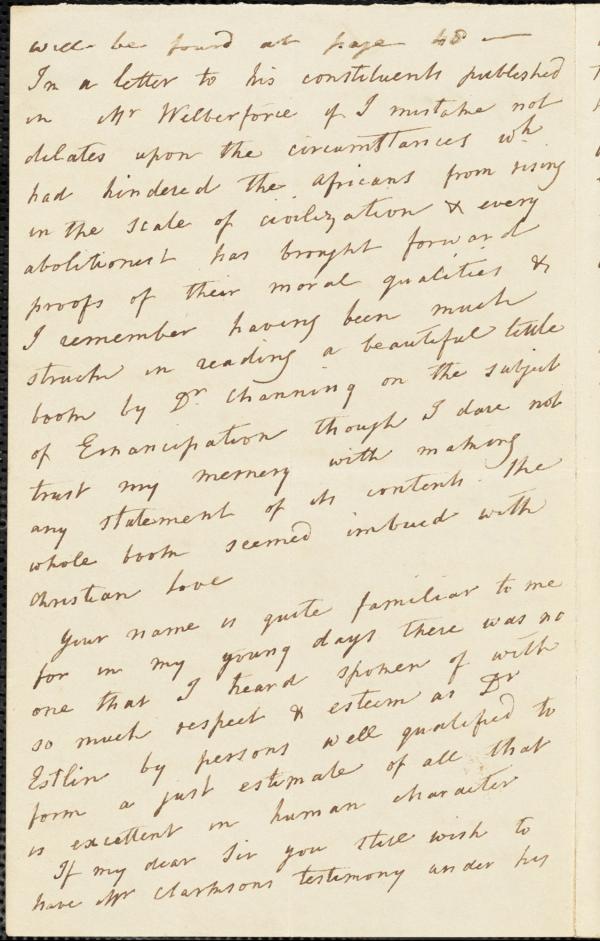 will be found at page 48 —
In a letter to his constituents published
in Mr Wilberforce if I mistake not
dilates upon the circumstances wh
had hindered the africans from rising
in the scale of civilization & every
abolitionist has brought forward
proofs of their moral qualities &
I remember having been much
struck in reading a beautiful little
book by Dr Channing on the subject
of Emancipation though I dare not
trust my memory with making
any statement of its contents. The
whole book seemed imbued with
Christian Love
Your name is quite familiar to me
for in my young days there was no
one that I heard spoken of with
so much respect & esteem as Dr
Estlin by persons well qualified to
form a just estimate of all that
is excellent in human character
If my dear Sir you still wish to
have Mr Clarksons testimony under his